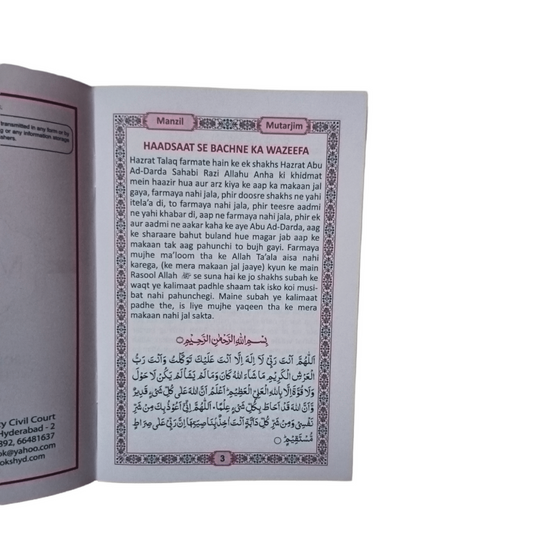 transmitted in any form or by
ng or any information storage
shers.
ty Civil Court
Hyderabad - 2
892, 66481637
ok@yahoo.com
okshyd.com
Manzil
Mutarjim
HAADSAAT SE BACHNE KA WAZEEFA
Hazrat Talaq farmate hain ke ek shakhs Hazrat Abu
Ad-Darda Sahabi Razi Allahu Anha ki khidmat
mein haazir hua aur arz kiya ke aap ka makaan jal
gaya, farmaya nahi jala, phir doosre shakhs ne yahi
itela'a di, to farmaya nahi jala, phir teesre aadmi
ne yahi khabar di, aap ne farmaya nahi jala, phir ek
aur aadmi ne aakar kaha ke aye Abu Ad-Darda, aag
ke sharaare bahut buland hue magar jab aap ke
makaan tak aag pahunchi to bujh gayi. Farmaya
mujhe ma'loom tha ke Allah Ta'ala aisa nahi
karega, (ke mera makaan jal jaaye) kyun ke main
Rasool Allah ﷺ se suna hai ke jo shakhs subah ke
waqt ye kalimaat padhle shaam tak isko koi musi-
bat nahi pahunchegi. Maine subah ye kalimaat
padhe the, is liye mujhe yaqeen tha ke mera
makaan nahi jal sakta.
بِسْمِ اللّٰهِ الرَّحْمٰنِ الرَّحِيْمِ
اَللّٰهُمَّ اَنْتَ رَبِّيْ لَا اِلٰهَ اِلَّا اَنْتَ عَلَيْكَ تَوَكَّلْتُ وَاَنْتَ رَبُّ
الْعَرْشِ الْكَرِيْمِ مَا شَاءَ اللّٰهُ كَانَ وَمَا لَمْ يَشَأْ لَمْ يَكُنْ لَا حَوْلَ
وَلَا قُوَّةَ اِلَّا بِاللّٰهِ الْعَلِيِّ الْعَظِيْمِ اَعْلَمُ اَنَّ اللّٰهَ عَلٰى كُلِّ شَيْءٍ قَدِيْرٌ
وَّاَنَّ اللّٰهَ قَدْ اَحَاطَ بِكُلِّ شَيْءٍ عِلْمًا اَللّٰهُمَّ اِنِّيْ اَعُوْذُ بِكَ مِنْ شَرِّ
نَفْسِيْ وَمِنْ شَرِّ كُلِّ دَابَّةٍ اَنْتَ اٰخِذٌ بِنَاصِيَتِهَا اِنَّ رَبِّيْ عَلٰى صِرَاطٍ
مُّسْتَقِيْمٍ
3